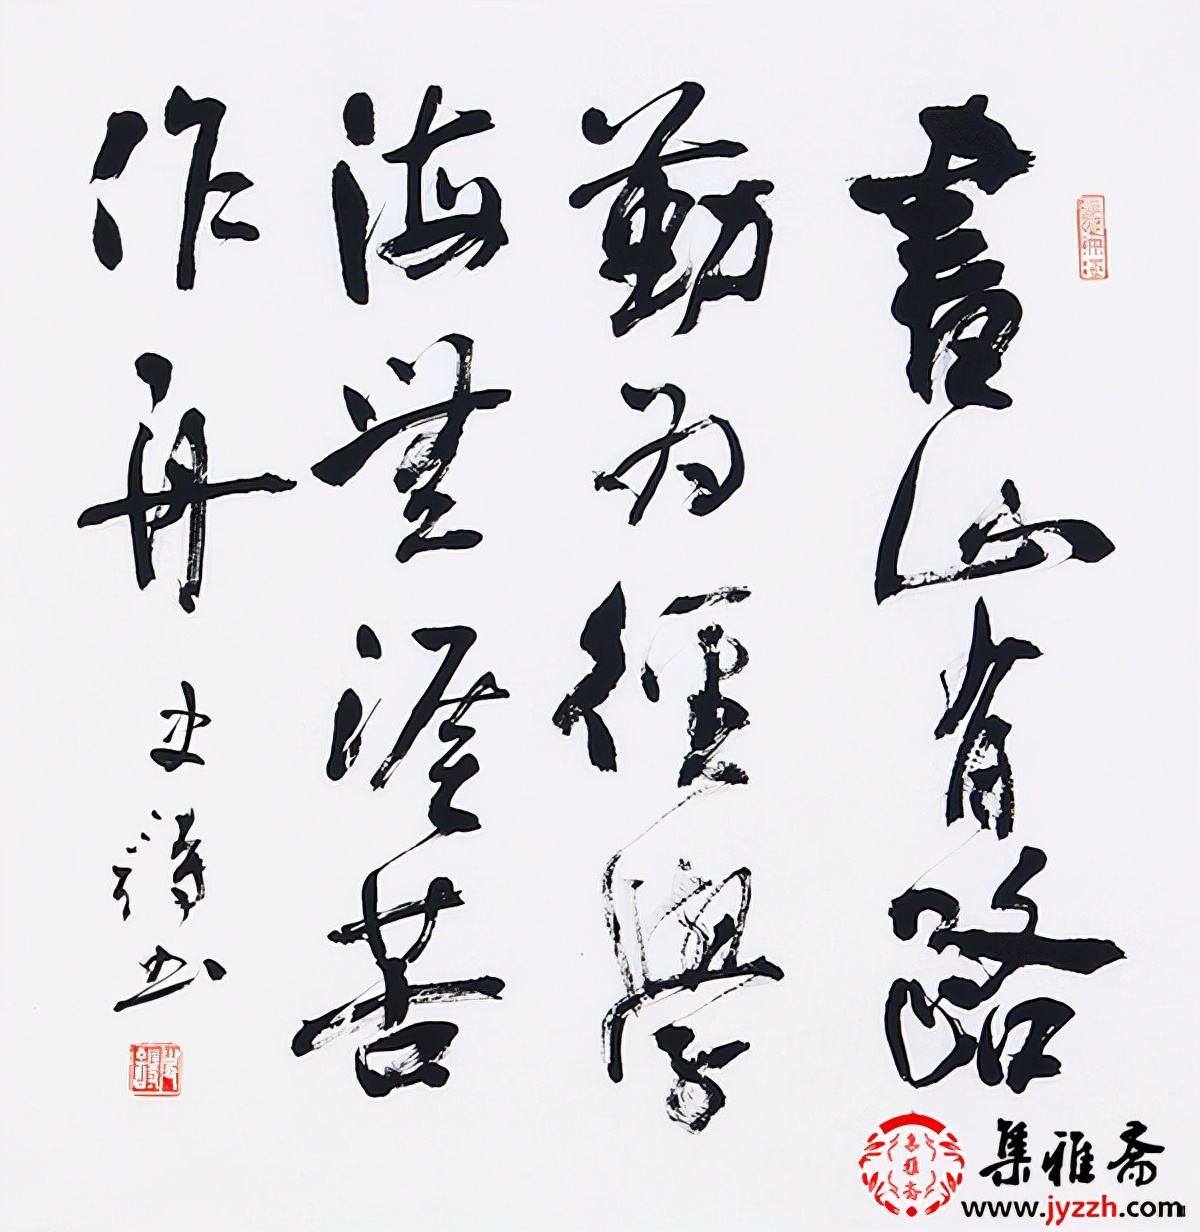 書山有路
勤为徑學
海無涯苦
作舟
书
集雅斋
集雅斋
www.jyzzh.com